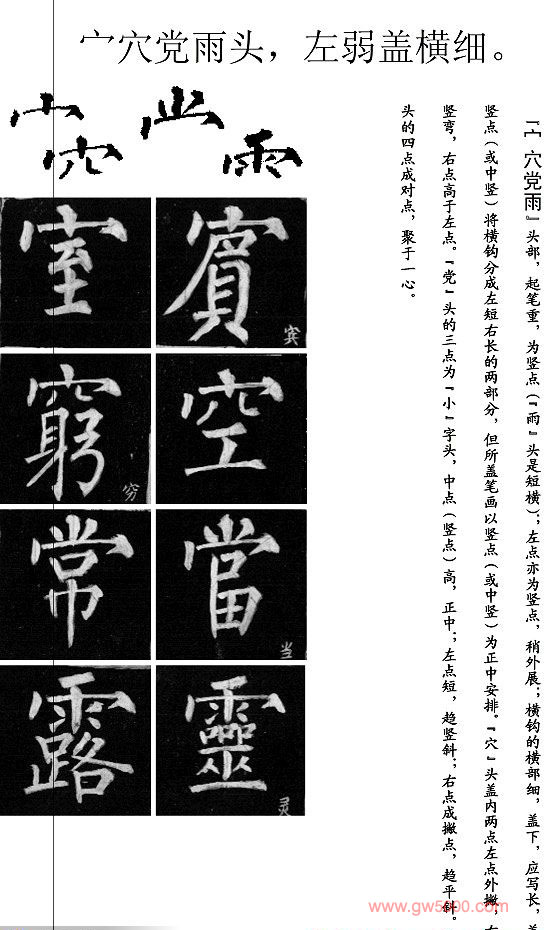 宀穴党雨头，左弱盖横细。
『宀 穴党雨』头部，起笔重，为竖点（『雨』头是短横）；左点亦为竖点，稍外展；横钩的横部细，盖下，应写长，
竖点（或中竖）将横钩分成左短右长的两部分，但所盖笔画以竖点（或中竖）为正中安排。『穴』头盖内两点左点外撇
竖弯，右点高于左点。『党』头的三点为『小』字头，中点（竖点）高，正中；左点短，趋竖斜；右点成撇点，趋平斜。
头的四点成对点，聚于一心。
室 賓 宾
窮 穷 空
常 當 当
露 靈 灵